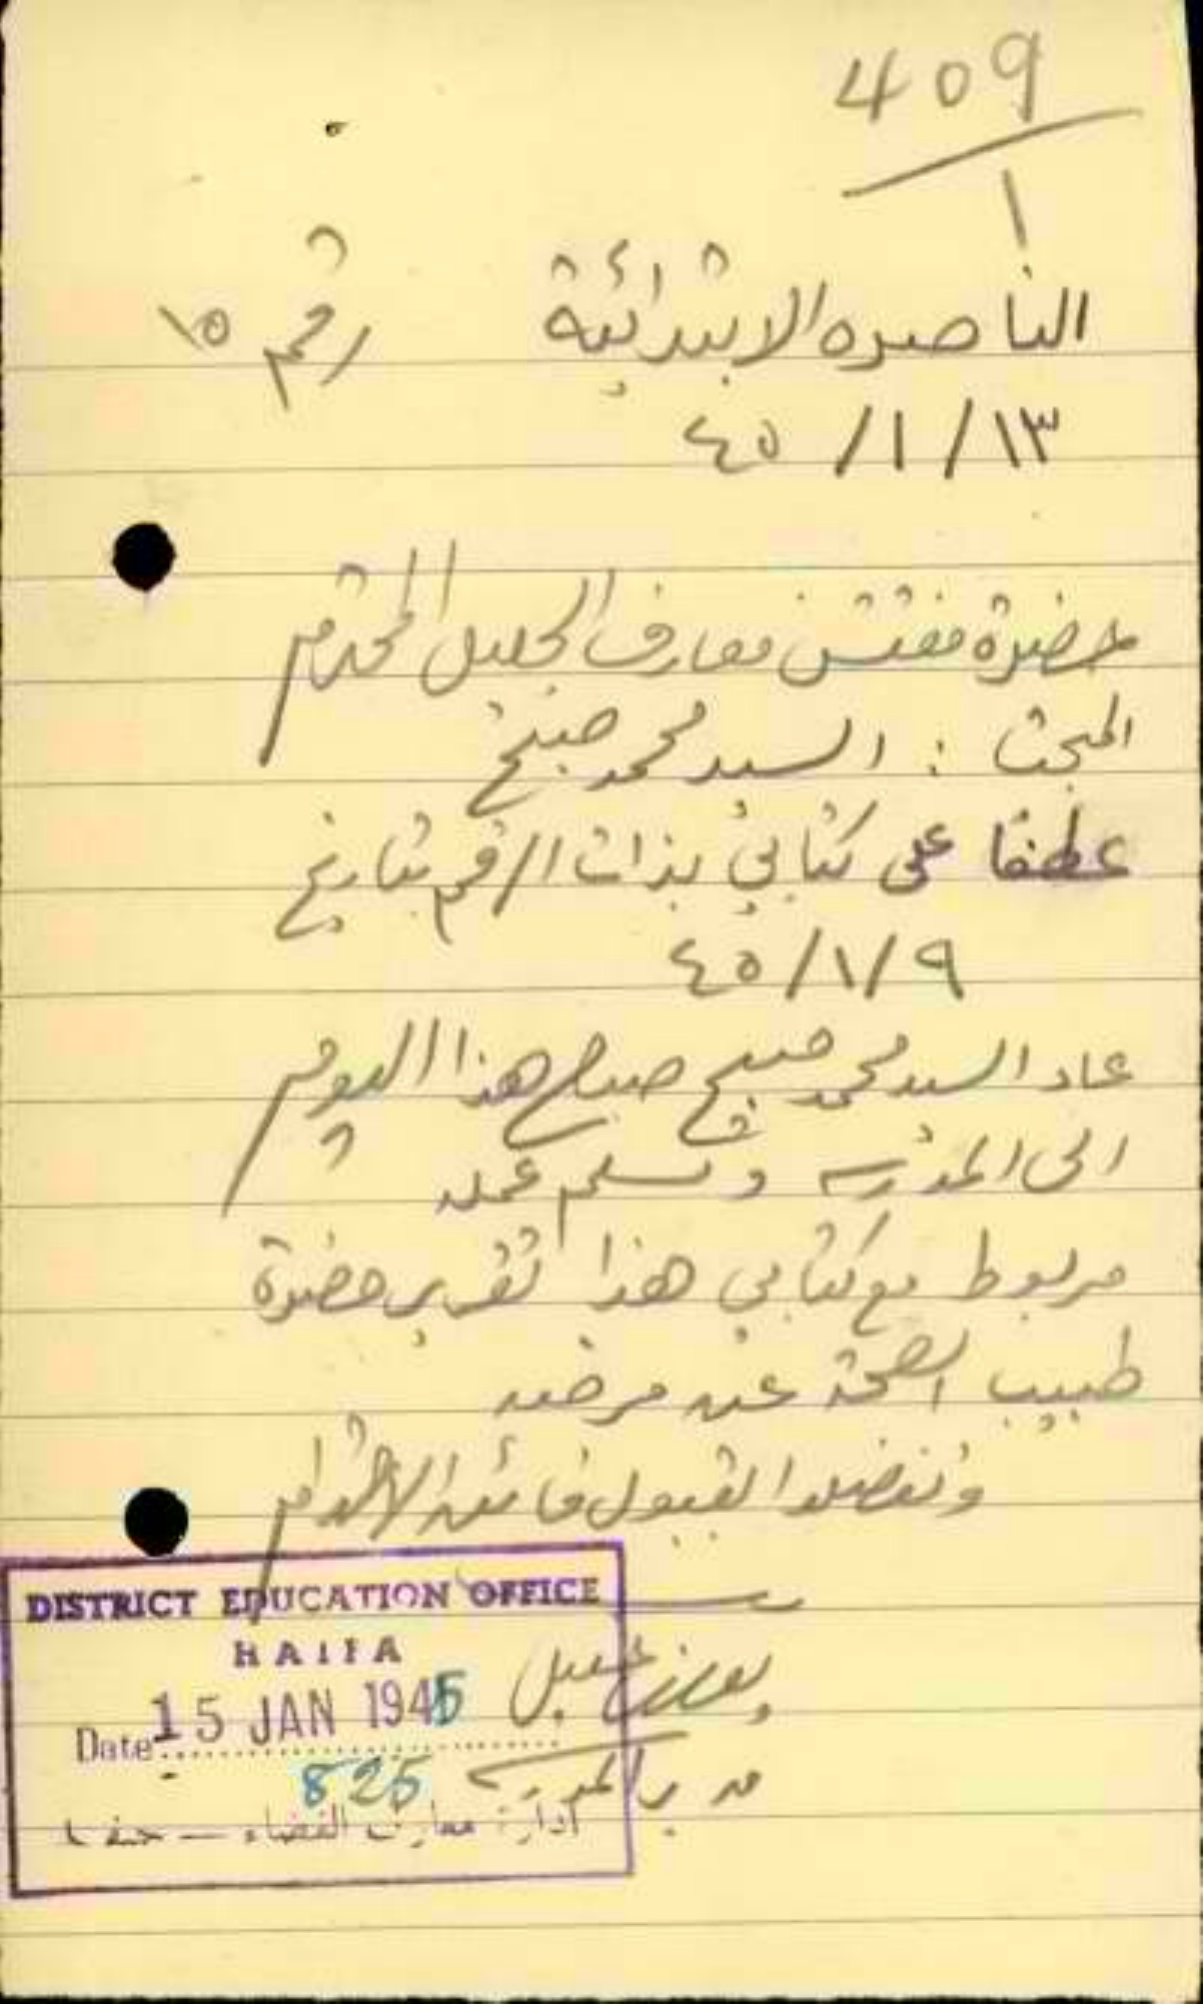 409
١
الناصره الابتدائية رقم ١٥
١٣/١/٤٥
حضرة مفتش معارف الجليل المحترم
المبحث : السيد محمد صبح
عطفًا على كتابي بذات الرقم بتاريخ
٩/١/٤٥
عاد السيد محمد صبح صباح هذا اليوم
الى المدرسه وتسلم عمله
مربوط مع كتابي هذا تقرير حضرة
طبيب الصحة عن مرضه
وتفضلوا بقبول فائق الاحترام
مدير المدرسه
DISTRICT EDUCATION OFFICE
HAIFA
Date 15 JAN 1945
825
ادارة معارف القضاء — حيفا